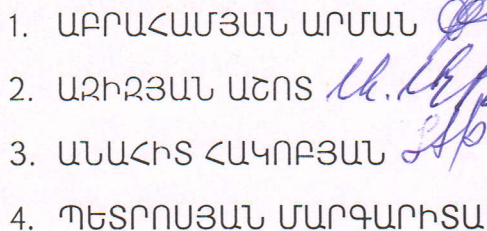 1. ԱԲՐԱՀԱՄՅԱՆ ԱՐՄԱՆ
2. ԱԶԻԶՅԱՆ ԱՇՈՏ
3. ԱՆԱՀԻՏ ՀԱԿՈԲՅԱՆ
4. ՊԵՏՐՈՍՅԱՆ ՄԱՐԳԱՐԻՏԱ